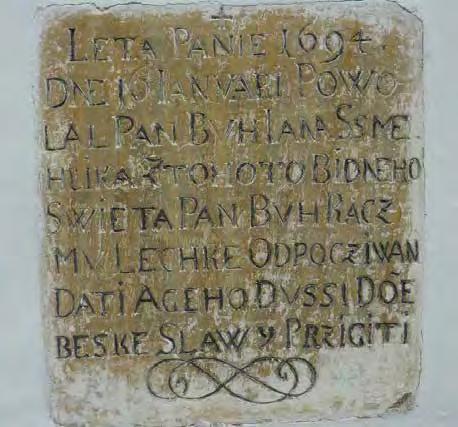 LETA PANIE 1694.
DNE 16 IANVARI POWO
LAL PAN BVH IANA SSME
HLIKA Z TOHOTO BIDNEHO
SWIETA PAN BVH RACZ
MV LECHKE ODPOCZIWAN
DATI AGEHO DVSSI DOÑE
BESKE SLAWY PRZIGITI